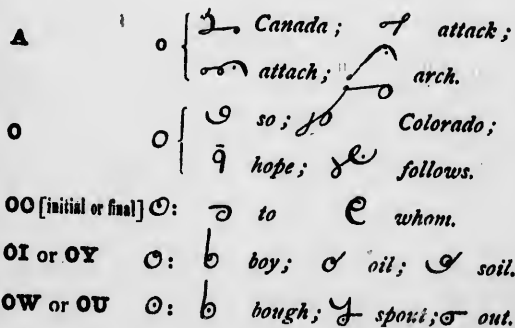 A o Canada; attack;
attach; arch.
O O so; Colorado;
hope; follows.
OO [initial or final] O: to whom.
OI or OY O: boy; oil; soil.
OW or OU O: bough; spout; out.